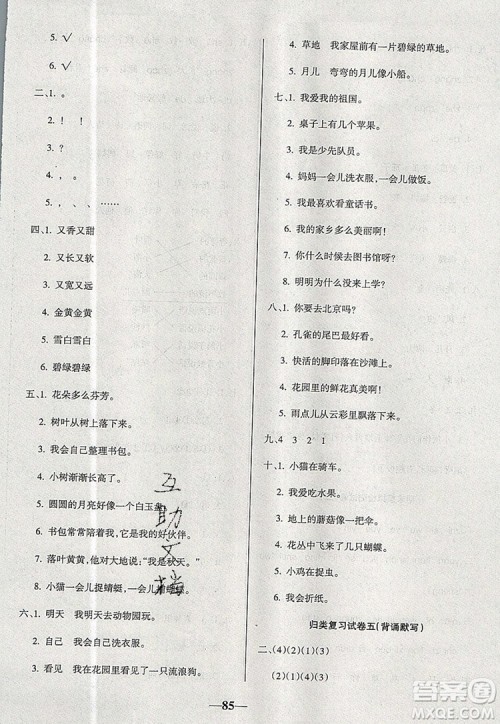 5. √
6. √
二、1. 。
2. ！ ！
3. ？
4. ， 。
5. ， ， ……
四、1. 又香又甜
2. 又长又软
3. 又宽又远
4. 金黄金黄
5. 雪白雪白
6. 碧绿碧绿
五、1. 花朵多么芬芳。
2. 树叶从树上落下来。
3. 我会自己整理书包。
4. 小树渐渐长高了。
5. 圆圆的月亮好像一个白玉盘。
6. 书包常常陪着我,它是我的好伙伴。
7. 落叶黄黄,他对大地说:“我是秋天。”
8. 小猫一会儿捉蜻蜓,一会儿捉蝴蝶。
六、1. 明天 我明天去动物园玩。
2. 衣服 我会自己洗衣服。
3. 看见 我在花园里看见了一只流浪狗。
4. 草地 我家屋前有一片碧绿的草地。
5. 月儿 弯弯的月儿像小船。
七、1. 我爱我的祖国。
2. 桌子上有几个苹果。
3. 我是少先队员。
4. 妈妈一会儿洗衣服,一会儿做饭。
5. 我最喜欢看童话书。
6. 我的家乡多么美丽啊!
7. 你什么时候去图书馆呀?
8. 明明为什么没来上学?
八、1. 你们要去北京吗?
2. 孔雀的尾巴最好看。
3. 快活的脚印落在沙滩上。
4. 花园里的鲜花真美啊!
5. 雨点儿从云彩里飘落下来。
九、4 3 2 1
十、1. 小猫在骑车。
2. 我爱吃水果。
3. 地上的蘑菇像一把伞。
4. 花丛中飞来了几只蝴蝶。
5. 小鸡在捉虫。
6. 公鸡喔喔叫。
归类复习试卷五(背诵默写)
二、(4)(2)(1)(3)
(2)(1)(4)(3)
互助文档
85
答案圈
MXQE.COM